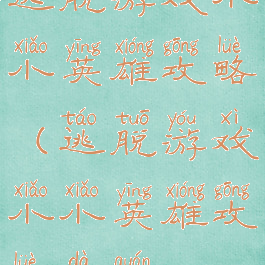 逃脱游戏小
xiǎo yīng xióng gōng lüè
小英雄攻略
táo tuō yóu xì
（逃脱游戏
xiǎo xiǎo yīng xióng gōng
小小英雄攻
lüè dà quán